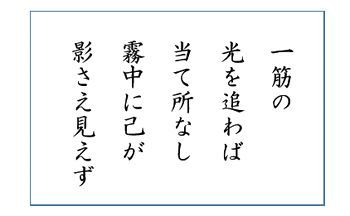 一筋の
光を追わば
当て所なし
霧中に己が
影さえ見えず